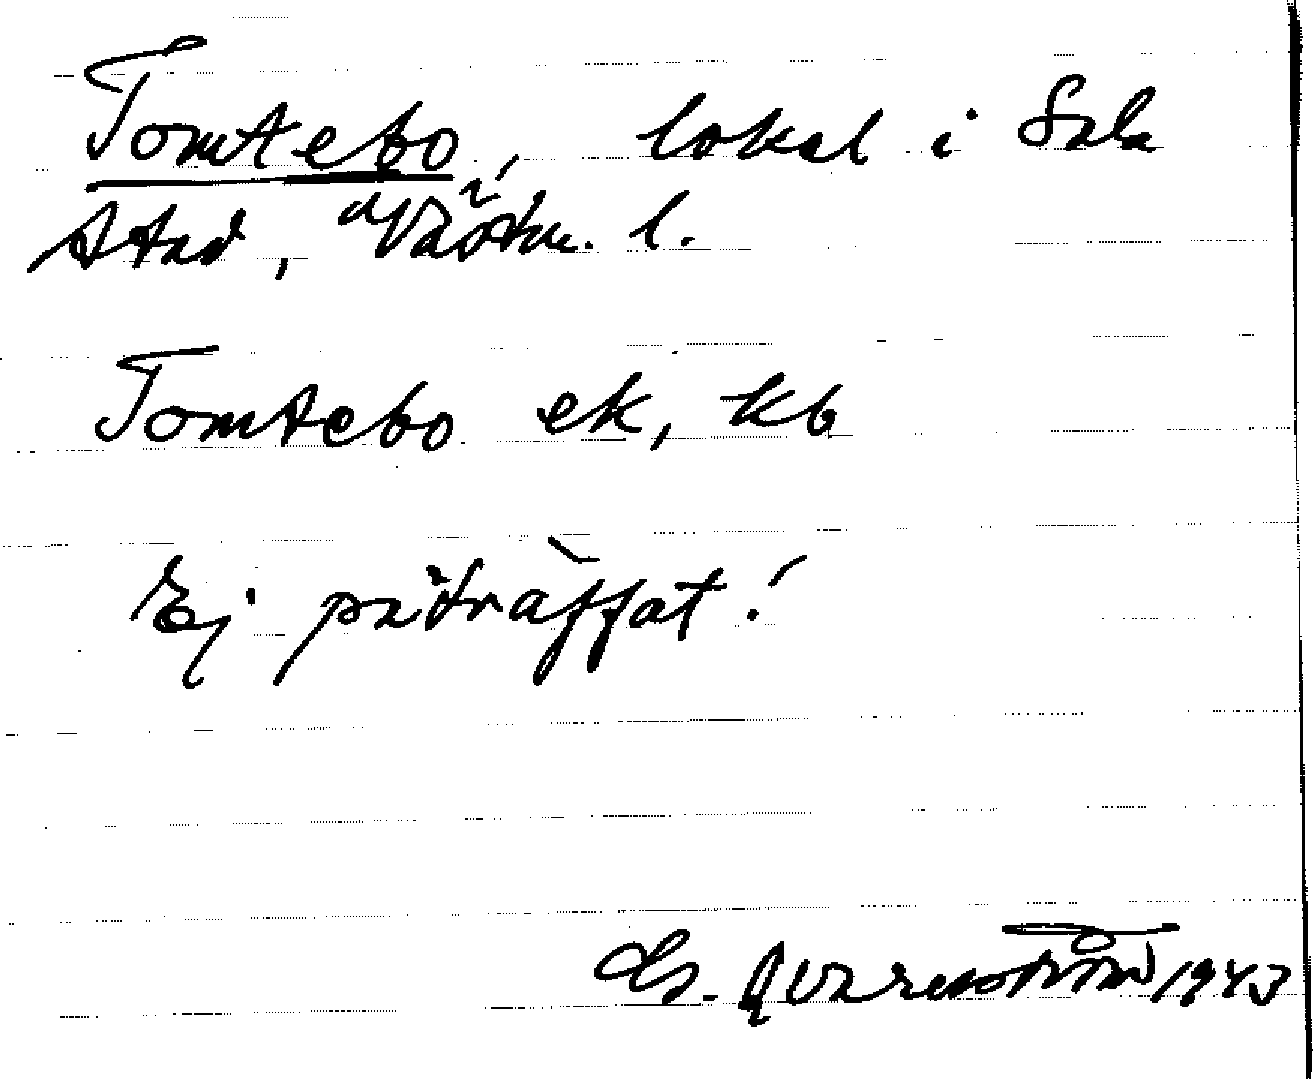 Tomtebo, lokal i Sala
stad, Västm. l.
Tomtebo ek, kb
Ej påträffat!
G. Qvarnström 1943